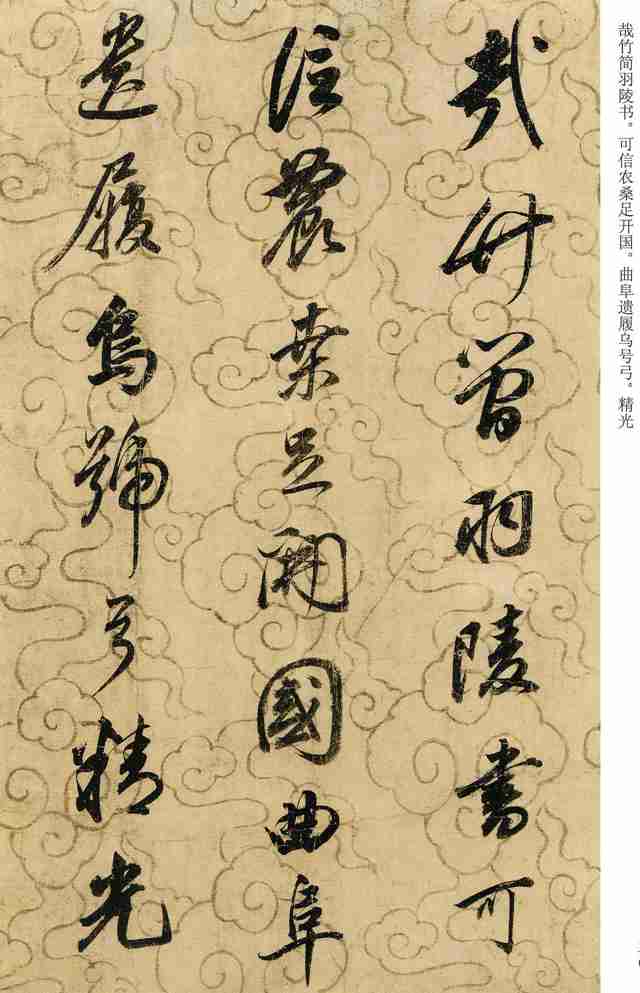 哉竹简羽陵书。可信农桑足开国。曲阜遗履乌号弓。精光
哉竹簡羽陵書可
信農桒足開國曲阜
遺履烏號弓精光